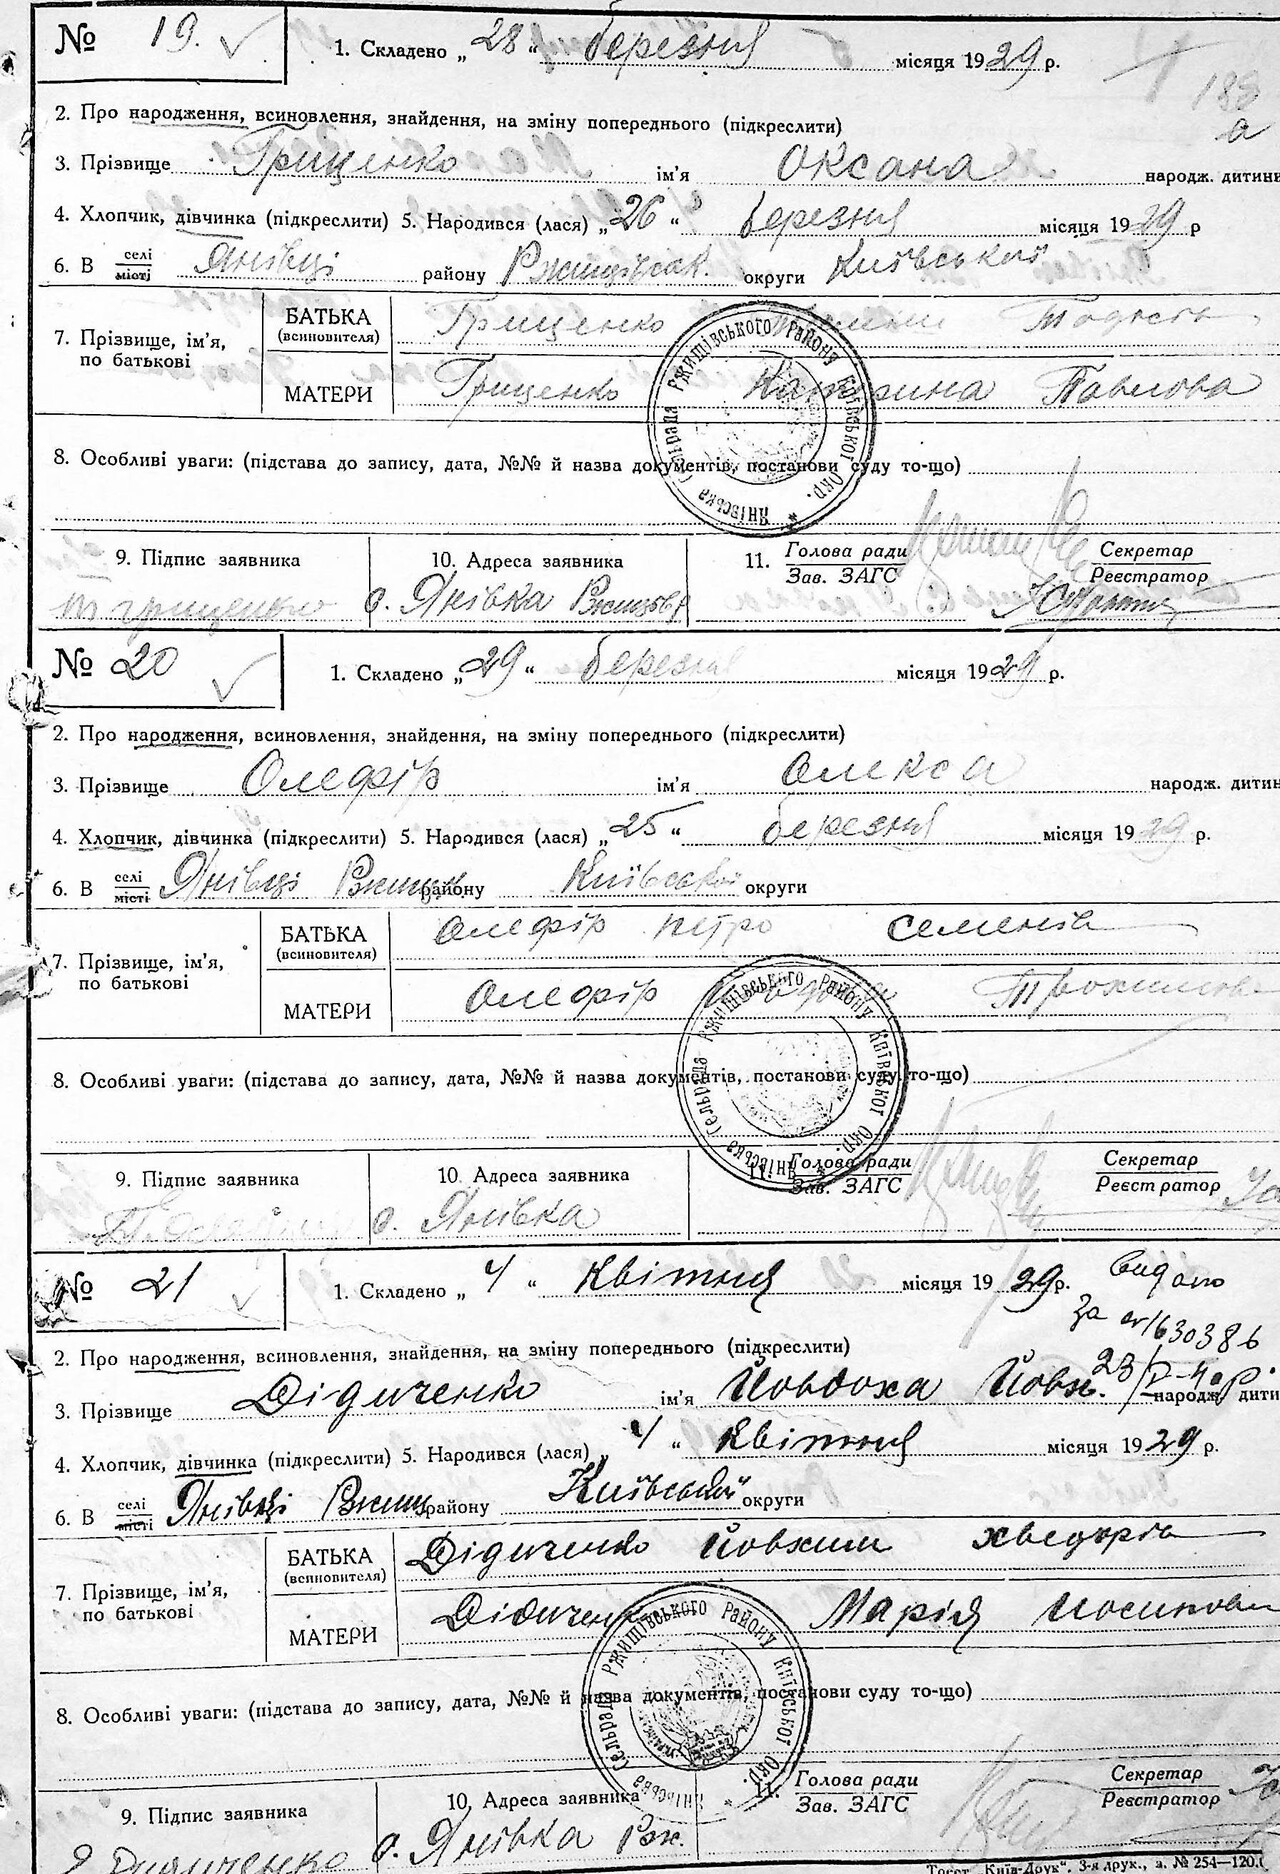 № 19. 1. Складено „28“ березня місяця 1929 р.
188
а
2. Про народження, всиновлення, знайдення, на зміну попереднього (підкреслити)
3. Прізвище Гриценко ім'я Оксана народж. дитини
4. Хлопчик, дівчинка (підкреслити) 5. Народився (лася) „26“ березня місяця 1929 р
6. В селі місті Янівці району Ржищівськ. округи Київської
7. Прізвище, ім'я, по батькові
БАТЬКА (всиновителя) Гриценко
МАТЕРИ Гриценко Катерина Павлова
8. Особливі уваги: (підстава до запису, дата, №№ й назва документів, постанови суду то-що)
Янівська Сельрада Ржищівського Району Київської Окр.
9. Підпис заявника 10. Адреса заявника 11. Голова ради Зав. ЗАГС Секретар Реєстратор
Гриценко с. Янівка
№ 20 1. Складено „29“ березня місяця 1929 р.
2. Про народження, всиновлення, знайдення, на зміну попереднього (підкреслити)
3. Прізвище Олефір ім'я Олекса народж. дитин
4. Хлопчик, дівчинка (підкреслити) 5. Народився (лася) „25“ березня місяця 1929 р.
6. В селі місті Янівці Ржищ району Київської округи
7. Прізвище, ім'я, по батькові
БАТЬКА (всиновителя) Олефір Петро Семенів
МАТЕРИ Олефір Трохимова
8. Особливі уваги: (підстава до запису, дата, №№ й назва документів, постанови суду то-що)
Янівська Сельрада Ржищівського Району Київської Окр.
9. Підпис заявника 10. Адреса заявника 11. Голова ради Зав. ЗАГС Секретар Реєстратор
с. Янівка
№ 21 1. Складено „4“ Квітня місяця 1929 р. видано
За № 1630386
2. Про народження, всиновлення, знайдення, на зміну попереднього (підкреслити)
3. Прізвище Дідиченко ім'я Йовдоха Йовх. народж. дити
4. Хлопчик, дівчинка (підкреслити) 5. Народився (лася) „4“ Квітня місяця 1929 р.
6. В селі місті Янівці Ржищ району Київської округи
7. Прізвище, ім'я, по батькові
БАТЬКА (всиновителя) Дідиченко Йовхим Хведорів
МАТЕРИ Дідиченко Марія Йосипова
8. Особливі уваги: (підстава до запису, дата, №№ й назва документів, постанови суду то-що)
Янівська Сельрада Ржищівського Району Київської Окр.
9. Підпис заявника 10. Адреса заявника 11. Голова ради Зав. ЗАГС Секретар Реєстратор
Дідиченко с. Янівка Рж.
Трест „Київ-Друк“, 3-я друк., з. № 254—120.